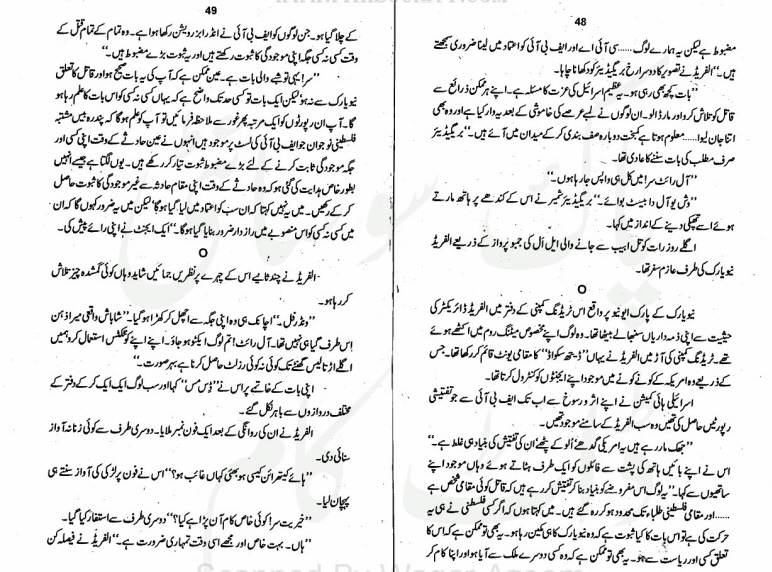 48
مضبوط ہے لیکن یہ ہمارے لوگ......سی آئی اے اور ایف بی آئی کو اعتماد میں لینا ضروری سمجھتے
ہیں۔‘‘ الفریڈ نے تصویر کا دوسرا رخ بریگیڈیئر کو دکھانا چاہا۔
’’بات کچھ بھی رہی ہو۔ یہ عظیم اسرائیل کی عزت کا مسئلہ ہے۔ اپنے ہر ممکن ذرائع سے
قاتل کو تلاش کرو اور مار ڈالو۔ ان لوگوں نے لمبے عرصے کی خاموشی کے بعد یہ وار کیا ہے اور وہ بھی
اتنا جان لیوا...... معلوم ہوتا ہے کمبخت دوبارہ صف بندی کر کے میدان میں آئے ہیں۔‘‘ بریگیڈیئر
صرف مطلب کی بات سننے کا عادی تھا۔
’’آل رائٹ سر! میں کل ہی واپس جا رہا ہوں۔‘‘
’’وش یو آل دا بیسٹ بوائے۔‘‘ بریگیڈیئر شمیر نے اس کے کندھے پر ہاتھ مارتے
ہوئے اسے تھپکی دینے کے انداز میں کہا۔
اگلے روز رات کو تل ابیب سے جانے والی ایل آل کی جمبو پرواز کے ذریعے الفریڈ
نیویارک کی طرف عازم سفر تھا۔
O
نیویارک کے پارک ایونیو پر واقع اس ٹریڈنگ کمپنی کے دفتر میں الفریڈ ڈائریکٹر کی
حیثیت سے اپنی ذمہ داریاں سنبھالے بیٹھا تھا۔ وہ لوگ اپنے مخصوص میٹنگ روم میں اکٹھے ہوئے
تھے۔ ٹریڈنگ کمپنی کی آڑ میں الفریڈ نے یہاں ’’ڈیتھ سکواڈ‘‘ کا مقامی یونٹ قائم کر رکھا تھا۔ جس
کے ذریعے وہ امریکہ کے کونے کونے میں موجود اپنے ایجنٹوں کو کنٹرول کرتا تھا۔
اسرائیلی ہائی کمیشن نے اپنے اثر و رسوخ سے اب تک ایف بی آئی سے جو تفتیشی
رپورٹیں حاصل کی تھیں وہ سب الفریڈ کے سامنے موجود تھیں۔
’’جھک مار رہے ہیں یہ امریکی گدھے‘ اُلو کے پٹھے‘ ان کی تفتیش کی بنیاد ہی غلط ہے۔‘‘
اس نے اپنے بائیں ہاتھ کی پشت سے فائلوں کو ایک طرف ہٹاتے ہوئے وہاں موجود اپنے
ساتھیوں سے کہا۔ ’’یہ لوگ اس مفروضے کو بنیاد بنا کر تفتیش کر رہے ہیں کہ قاتل کوئی مقامی شخص ہے
......اور مقامی فلسطینی طلباء تک محدود ہو کر رہ گئے ہیں۔ میں کہتا ہوں کہ اگر کسی فلسطینی نے ہی یہ
حرکت کی ہے تو اس بات کا کیا ثبوت ہے کہ وہ نیویارک کا ہی مکین رہا ہو۔ یہ بھی تو ممکن ہے کہ اس کا
تعلق کسی اور ریاست سے ہو۔ یہ بھی تو ممکن ہے کہ وہ کسی دوسرے ملک سے آیا ہو اور اپنا کام کر
49
کے چلا گیا ہو۔ جن لوگوں کو ایف بی آئی نے انڈر ابزرویشن رکھا ہوا ہے۔ وہ تمام کے تمام قتل کے
وقت کسی نہ کسی جگہ اپنی موجودگی کا ثبوت رکھتے ہیں اور یہ ثبوت بڑے مضبوط ہیں۔‘‘
’’سر! یہی تو شبے والی بات ہے۔ عین ممکن ہے کہ آپ کی یہ بات صحیح ہو اور قاتل کا تعلق
نیویارک سے نہ ہو‘ لیکن ایک بات تو کسی حد تک واضح ہے کہ یہاں کسی نہ کسی کو اس بات کا علم رہا ہو
گا۔ آپ ان رپورٹوں کو ایک مرتبہ پھر غور سے ملاحظہ فرمائیں تو آپ کو علم ہو گا کہ پندرہ میں مشتبہ
فلسطینی نوجوان جو ایف بی آئی کی لسٹ پر موجود ہیں انہوں نے عین حادثے کے وقت اپنی کسی اور
جگہ موجودگی ثابت کرنے کے لئے بڑے مضبوط ثبوت تیار کر رکھے ہیں۔ یوں لگتا ہے جیسے انہیں
بطور خاص ہدایت کی گئی ہو کہ وہ حادثے کے وقت اپنی مقام حادثہ سے غیر موجودگی کا ثبوت حاصل
کر کے رکھیں۔ میں یہ نہیں کہتا کہ ان سب کو اعتماد میں لیا گیا ہو گا‘ لیکن میں یہ ضرور کہوں گا کہ ان
میں کسی نہ کسی کو اس منصوبے میں رازدار ضرور بنایا گیا ہو گا۔‘‘ ایک ایجنٹ نے اپنی رائے پیش کی۔
O
الفریڈ نے چند ثانیے اس کے چہرے پر نظریں جمائیں شاید وہاں کوئی گمشدہ چیز تلاش
کر رہا ہو۔
’’ونڈرفل۔‘‘ اچانک ہی وہ اپنی جگہ سے اچھل کر کھڑا ہو گیا۔ ’’شاباش واقعی میرا ذہن
اس طرف گیا ہی نہیں تھا۔ آل رائٹ تم لوگ ایکٹو ہو جاؤ۔ اپنے اپنے کونٹیکٹس استعمال کرو ہمیں
اگلے اڑتالیس گھنٹے تک کوئی نہ کوئی رزلٹ حاصل کرنا ہے بہر صورت۔‘‘
اپنی بات کے خاتمے پر اس نے ’’ڈس مس‘‘ کہا اور سب لوگ ایک ایک کر کے دفتر کے
مختلف دروازوں سے باہر نکل گئے۔
الفریڈ نے ان کی روانگی کے بعد ایک فون نمبر ملایا۔ دوسری طرف سے کوئی زنانہ آواز
سنائی دی۔
’’ہائے کیتھرائن کیسی ہو بھئی کہاں غائب ہو؟‘‘ اس نے فون پر لڑکی کی آواز سنتے ہی
پہچان لیا۔
’’خیریت سر! کوئی خاص کام آن پڑا ہے کیا؟‘‘ دوسری طرف سے استفسار کیا گیا۔
’’ہاں۔ بہت خاص اور مجھے اسی وقت تمہاری ضرورت ہے۔‘‘ الفریڈ نے فیصلہ کن